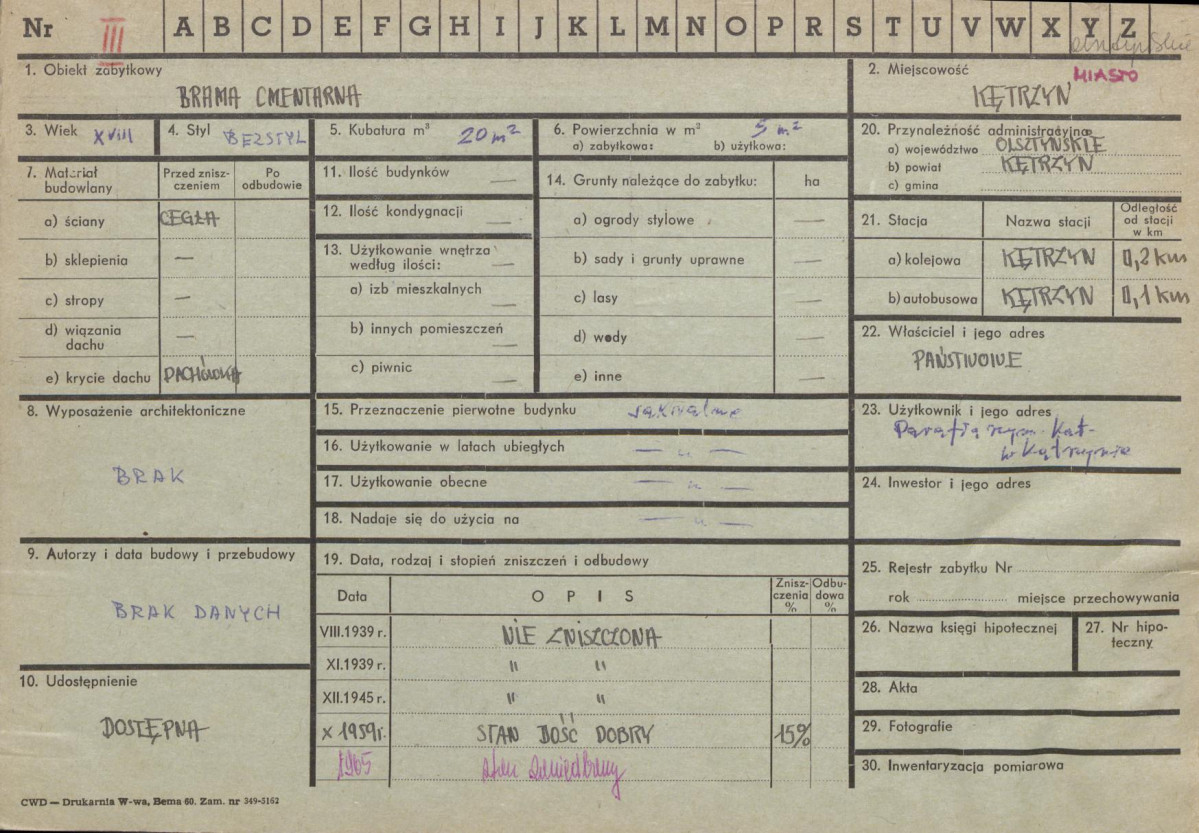 Nr III A B C D E F G H I J K L M N O P R S T U V W X Y Z
1. Obiekt zabytkowy
BRAMA CMENTARNA
2. Miejscowość MIASTO
KĘTRZYN
3. Wiek XVIII
4. Styl BEZSTYL
5. Kubatura m³ 20 m²
6. Powierzchnia w m² 5 m²
a) zabytkowa: b) użytkowa:
20. Przynależność administracyjna
a) województwo OLSZTYŃSKIE
b) powiat KĘTRZYN
c) gmina
7. Materiał budowlany
Przed zniszczeniem
Po odbudowie
a) ściany CEGŁA
b) sklepienia —
c) stropy —
d) wiązania dachu —
e) krycie dachu DACHÓWKA
11. Ilość budynków —
12. Ilość kondygnacji —
13. Użytkowanie wnętrza według ilości: —
a) izb mieszkalnych —
b) innych pomieszczeń —
c) piwnic —
14. Grunty należące do zabytku: ha
a) ogrody stylowe —
b) sady i grunty uprawne —
c) lasy —
d) wody —
e) inne —
21. Stacja
Nazwa stacji
Odległość od stacji w km
a) kolejowa KĘTRZYN 0,2 km
b) autobusowa KĘTRZYN 0,1 km
22. Właściciel i jego adres
PAŃSTWOWE
8. Wyposażenie architektoniczne
BRAK
15. Przeznaczenie pierwotne budynku sakralne
16. Użytkowanie w latach ubiegłych — " —
17. Użytkowanie obecne — " —
18. Nadaje się do użycia na — " —
23. Użytkownik i jego adres
Parafia rzym. Kat.
w Kętrzynie
24. Inwestor i jego adres
9. Autorzy i data budowy i przebudowy
BRAK DANYCH
19. Data, rodzaj i stopień zniszczeń i odbudowy
Data
OPIS
Zniszczenia %
Odbudowa %
VIII.1939 r. NIE ZNISZCZONA
XI.1939 r. " "
XII.1945 r. " "
X 1959r. STAN DOŚĆ DOBRY 15%
1965 stan zaniedbany
25. Rejestr zabytku Nr
rok miejsce przechowywania
26. Nazwa księgi hipotecznej
27. Nr hipoteczny
10. Udostępnienie
DOSTĘPNA
28. Akta
29. Fotografie
30. Inwentaryzacja pomiarowa
CWD — Drukarnia W-wa, Bema 60. Zam. nr 349-5162